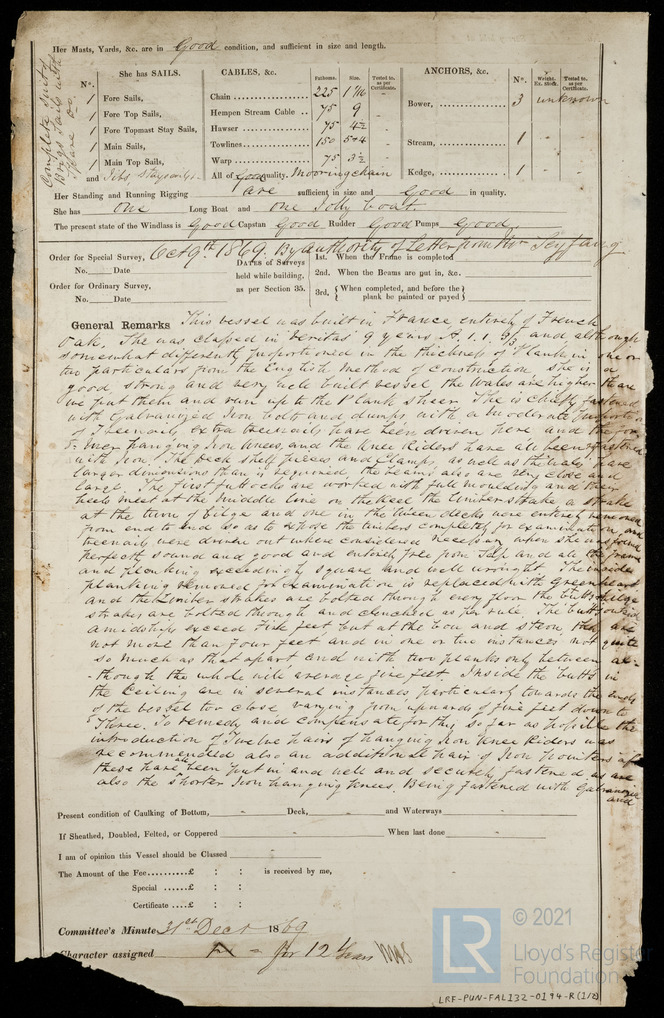 Her Masts, Yards, &c. are in Good condition, and sufficient in size and length.
Complete suit Brigs Sails with spare do.
N°. She has SAILS. CABLES, &c. Fathoms. Size. Tested to, as per Certificate. ANCHORS, &c. N°. Weight. Ex. Stock. Tested to, as per Certificate.
1 Fore Sails, Chain 225 1 7/16 - Bower, 3 unknown
1 Fore Top Sails, Hempen Stream Cable 75 9 -
1 Fore Topmast Stay Sails, Hawser 75 4½ - Stream, 1 -
1 Main Sails, Towlines 150 5+4 -
1 Main Top Sails, Warp 75 3½ - Kedge, 1 -
and Jibs Staysails All of good quality. Mooring chain
Her Standing and Running Rigging are sufficient in size and Good in quality.
She has One Long Boat and one Jolly boat
The present state of the Windlass is Good Capstan Good Rudder Good Pumps Good.
Order for Special Survey, Oct 9th 1869. By authority of Letter from Mr Seyfang
No. Date
Order for Ordinary Survey,
No. Date
DATES of Surveys held while building, as per Section 35.
1st. When the Frame is completed
2nd. When the Beams are put in, &c.
3rd. { When completed, and before the plank be painted or payed }
General Remarks This vessel was built in France entirely of French
Oak. She was classed in Veritas 9 years A. 1. 1. and although
somewhat differently proportioned in the thickness of Plank in one or
two particulars from the English method of construction she is a
good strong and very well built vessel the Wales are higher than
we put them and run up to the Plank sheer. She is chiefly fastened
with Galvanized Iron bolts and dumps with a moderate proportion
of Treenails. Extra treenails have been driven here and the
hanging Iron Knees, and the Knee Riders have all been fastened
with Iron. The Deck shelf pieces and Clamps, as well as the Wales have
larger dimensions than is required, the beams also are very close and
large. The first futtocks are worked with full moulding and their
heels meet at the middle line on the Keel the limber strake a strake
at the turn of bilge and one in the tween decks were entirely removed
from end to end so as to expose the timbers completely for examination and
treenails were driven out where considered necessary when she was found
perfectly sound and good and entirely free from Sap and all the frame
and planking exceedingly square and well wrought. The inside
planking removed for examination is replaced with Greenheart
and the Limber strakes are bolted through every floor the butts bilge
strakes are bolted through and clenched as per rule. The butts outside
amidships exceed five feet but at the bow and stern they are
not more than four feet and in one or two instances not quite
so much as that apart and with two planks only between al-
-though the whole will average five feet. Inside the butts in
the Ceiling are in several instances particularly towards the ends
of the vessel too close varying from upwards of five feet down to
Three. To remedy and compensate for this, so far as possible the
introduction of Twelve pairs of hanging Iron Knee Riders was
recommended also an additional pair of Iron Pointers aft
these have all been put in and well and securely fastened, as are
also the shorter Iron hanging Knees. Being fastened with Galvanized
and
Present condition of Caulking of Bottom, - Deck, - and Waterways -
If Sheathed, Doubled, Felted, or Coppered - When last done -
I am of opinion this Vessel should be Classed -
The Amount of the Fee £ : : is received by me,
Special £ : :
Certificate £ : :
Committee's Minute 31st Decr 1869
Character assigned - for 12 Years
LR © 2021
Lloyd's Register
Foundation
LRF-PUN-FAL132-0194-R(1/2)